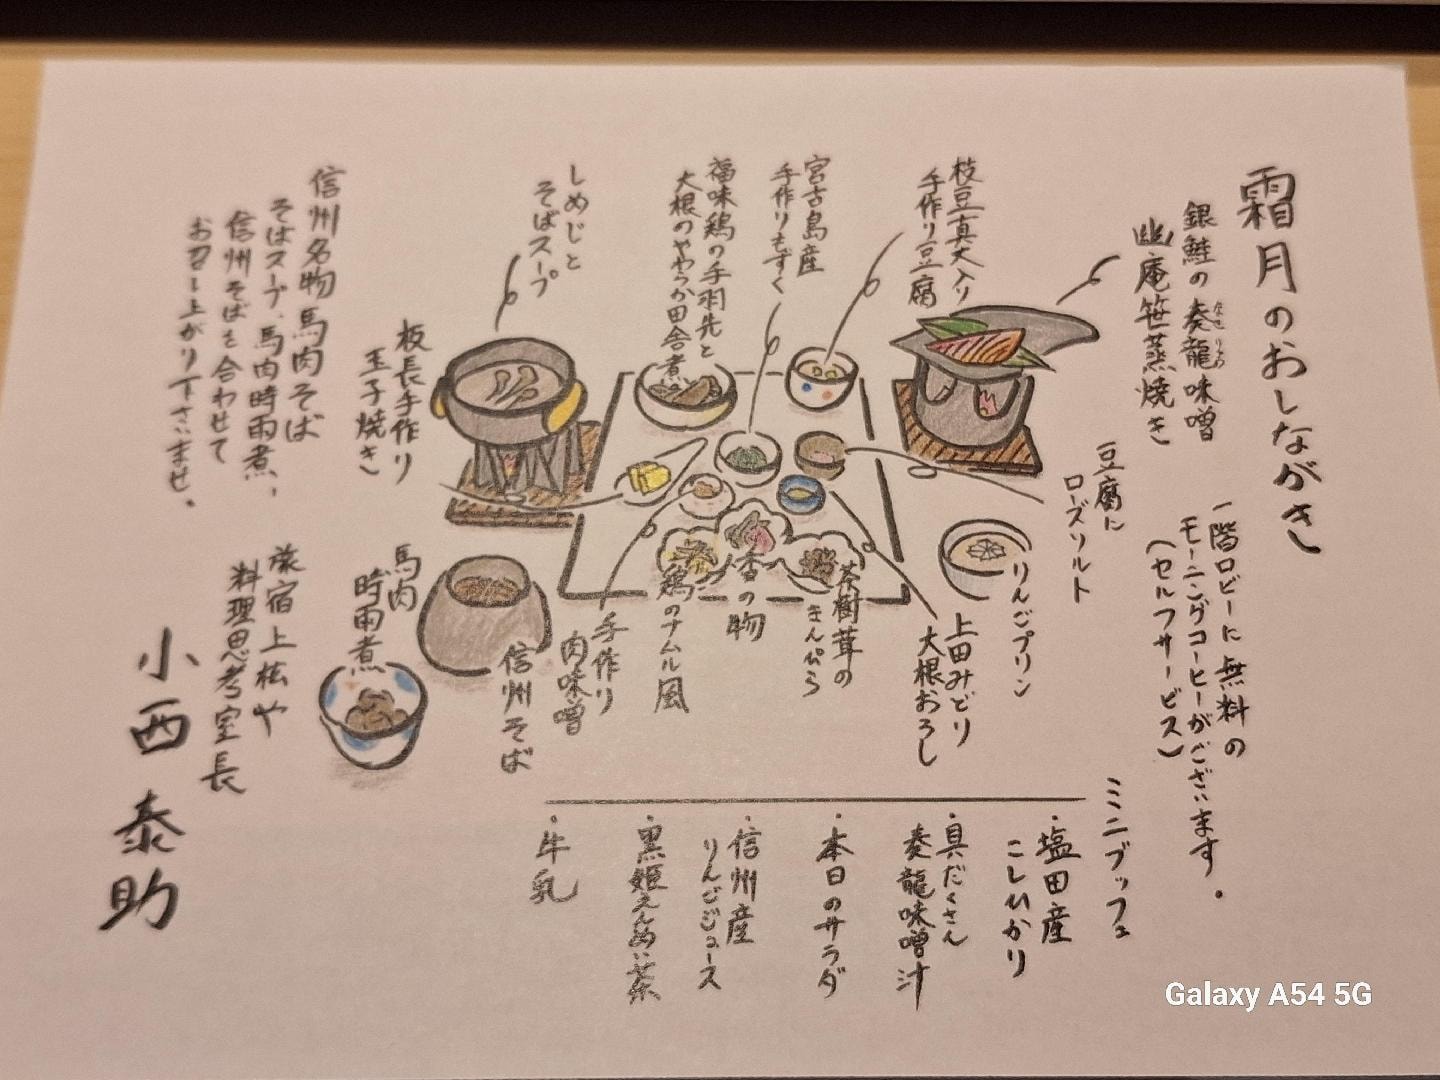 霜月のおしながき
銀鮭の奏龍味噌
なせりゅう
幽庵笹蒸焼き
一階ロビーに無料の
モーニングコーヒーがございます。
(セルフサービス)
豆腐に
ローズソルト
枝豆真丈入り
手作り豆腐
宮古島産
手作りもずく
福味鶏の手羽先と
大根のやわらか田舎煮
しめじと
そばスープ
板長手作り
玉子焼き
信州名物馬肉そば
そばスープ、馬肉時雨煮、
信州そばを合わせて
お召し上がり下さいませ。
りんごプリン
上田みどり
大根おろし
茶樹茸の
きんぴら
香の物
鶏のナムル風
手作り
肉味噌
信州そば
馬肉
時雨煮
ミニブッフェ
・塩田産
こしひかり
・具だくさん
奏龍味噌汁
・本日のサラダ
・信州産
りんごジュース
・黒姫えんめい茶
・牛乳
旅宿上松や
料理思考室長
小西泰助
Galaxy A54 5G